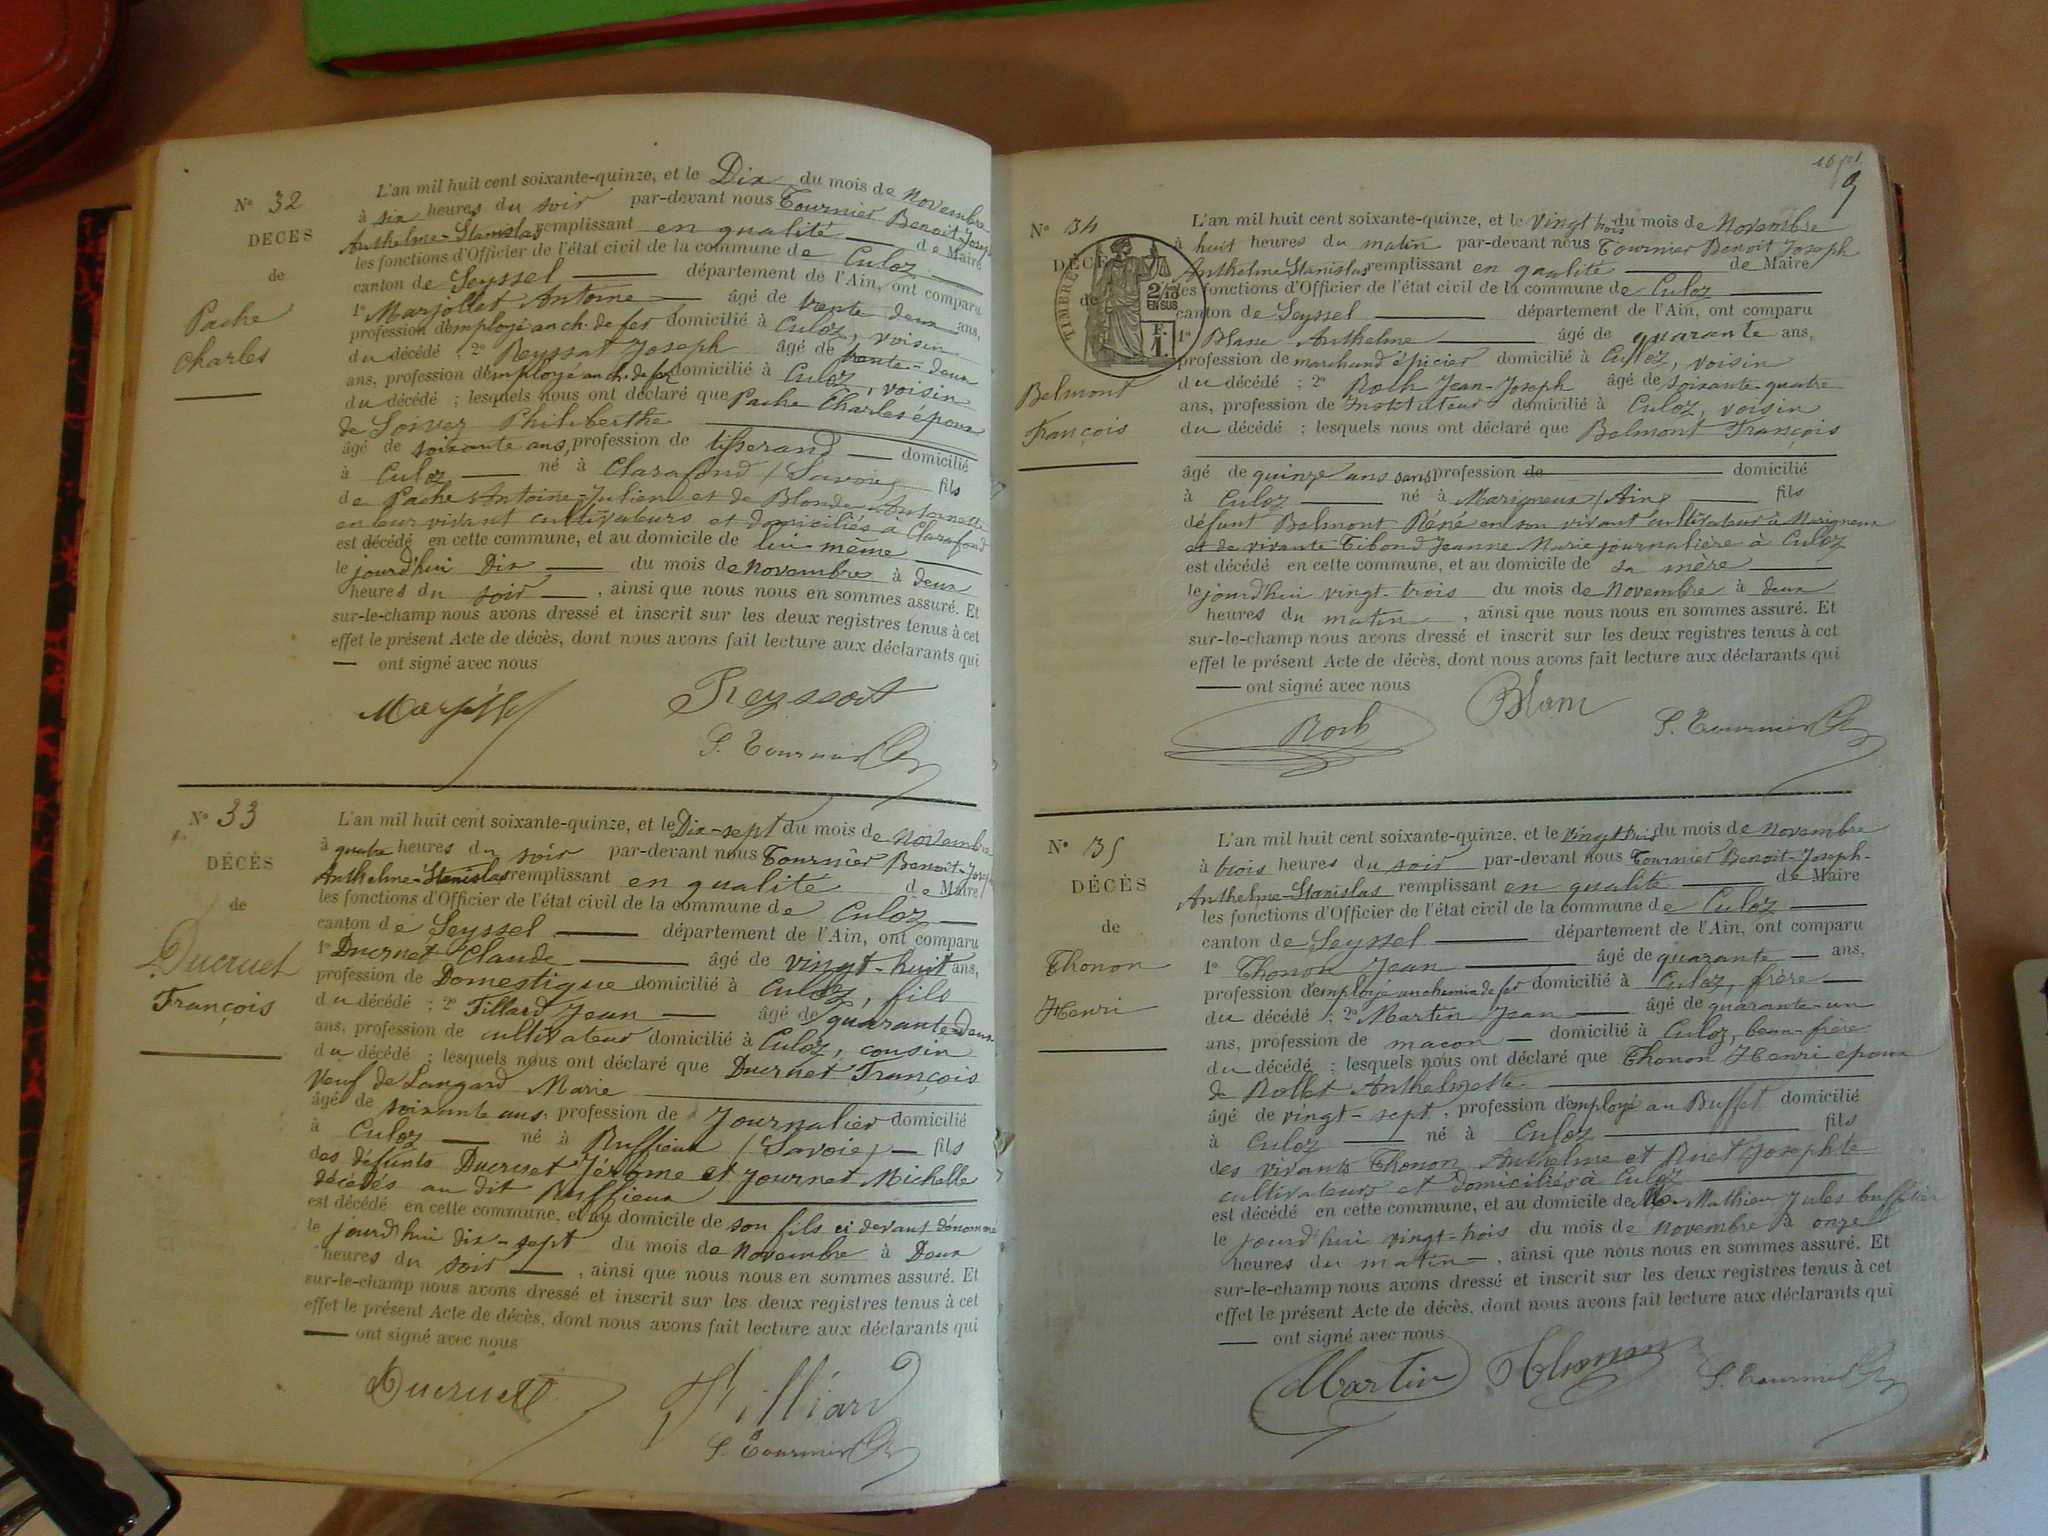 N° 32
DÉCÈS
de
Pache
Charles
L'an mil huit cent soixante-quinze, et le Dix du mois de Novembre
à six heures du soir par-devant nous Tournier Benoit-Joseph
Anthelme-Stanislas remplissant en qualité de Maire
les fonctions d'Officier de l'état civil de la commune de Culoz
canton de Seyssel département de l'Ain, ont comparu
1° Marjollet Antoine âgé de trente deux ans,
profession d'employé au ch. de fer domicilié à Culoz, voisin
du décédé ; 2° Reyssat Joseph âgé de trente-deux
ans, profession d'employé au ch. de fer domicilié à Culoz, voisin
du décédé ; lesquels nous ont déclaré que Pache Charles époux
de Philiberthe
âgé de soixante ans, profession de tisserand domicilié
à Culoz né à Clarafond (Savoie) fils
de Pache Antoine-Julien et de Blonde Antoinette
en leur vivant cultivateurs et domiciliés à Clarafond
est décédé en cette commune, et au domicile de lui-même
le jourd'hui Dix du mois de Novembre à deux
heures du soir, ainsi que nous nous en sommes assuré. Et
sur-le-champ nous avons dressé et inscrit sur les deux registres tenus à cet
effet le présent Acte de décès, dont nous avons fait lecture aux déclarants qui
— ont signé avec nous
Reyssat
S. Tournier
N° 33
DÉCÈS
de
Ducruet
François
L'an mil huit cent soixante-quinze, et le Dix-sept du mois de Novembre
à quatre heures du soir par-devant nous Tournier Benoit-Joseph
Anthelme-Stanislas remplissant en qualité de Maire
les fonctions d'Officier de l'état civil de la commune de Culoz
canton de Seyssel département de l'Ain, ont comparu
1° Ducruet Claude âgé de vingt-huit ans,
profession de Domestique domicilié à Culoz, fils
du décédé ; 2° Tillard Jean âgé de quarante-deux
ans, profession de cultivateur domicilié à Culoz, cousin
du décédé ; lesquels nous ont déclaré que Ducruet François
Veuf de Langard Marie
âgé de soixante ans, profession de Journalier domicilié
à Culoz né à Ruffieux (Savoie) fils
des défunts Ducruet Jérôme et Journet Michelle
décédés au dit Ruffieux
est décédé en cette commune, et au domicile de son fils ci devant dénommé
le jourd'hui dix-sept du mois de Novembre à Deux
heures du soir, ainsi que nous nous en sommes assuré. Et
sur-le-champ nous avons dressé et inscrit sur les deux registres tenus à cet
effet le présent Acte de décès, dont nous avons fait lecture aux déclarants qui
— ont signé avec nous
Ducruet Tilliard
S. Tournier
9
N° 34
DÉCÈS
de
TIMBRE
2/10
EN SUS
F.
1.
Belmont
François
L'an mil huit cent soixante-quinze, et le vingt trois du mois de Novembre
à huit heures du matin par-devant nous Tournier Benoit Joseph
Anthelme-Stanislas remplissant en qualité de Maire
les fonctions d'Officier de l'état civil de la commune de Culoz
canton de Seyssel département de l'Ain, ont comparu
1° Blanc Anthelme âgé de quarante ans,
profession de marchand épicier domicilié à Culoz, voisin
du décédé ; 2° Roch Jean-Joseph âgé de soixante-quatre
ans, profession de Instituteur domicilié à Culoz, voisin
du décédé ; lesquels nous ont déclaré que Belmont François
âgé de quinze ans sans profession de domicilié
à Culoz né à Marigneux (Ain) fils
défunt Belmont Réné en son vivant cultivateur à Marigneux
et de vivante Tibond Jeanne Marie journalière à Culoz
est décédé en cette commune, et au domicile de sa mère
le jourd'hui vingt-trois du mois de Novembre à deux
heures du matin, ainsi que nous nous en sommes assuré. Et
sur-le-champ nous avons dressé et inscrit sur les deux registres tenus à cet
effet le présent Acte de décès, dont nous avons fait lecture aux déclarants qui
— ont signé avec nous
Roch Blanc S. Tournier
N° 35
DÉCÈS
de
Thonon
Henri
L'an mil huit cent soixante-quinze, et le vingt trois du mois de Novembre
à trois heures du soir par-devant nous Tournier Benoit-Joseph-
Anthelme-Stanislas remplissant en qualité de Maire
les fonctions d'Officier de l'état civil de la commune de Culoz
canton de Seyssel département de l'Ain, ont comparu
1° Thonon Jean âgé de quarante ans,
profession d'employé au chemin de fer domicilié à Culoz, frère
du décédé ; 2° Martin Jean âgé de quarante-un
ans, profession de maçon domicilié à Culoz, beau-frère
du décédé ; lesquels nous ont déclaré que Thonon Henri époux
de Rollet Anthelmette
âgé de vingt-sept, profession d'employé au Buffet domicilié
à Culoz né à Culoz fils
des vivants Thonon Anthelme et Josephte
cultivateurs et domiciliés à Culoz
est décédé en cette commune, et au domicile de Mathieu Jules buffetier
le jourd'hui vingt-trois du mois de Novembre à onze
heures du matin, ainsi que nous nous en sommes assuré. Et
sur-le-champ nous avons dressé et inscrit sur les deux registres tenus à cet
effet le présent Acte de décès, dont nous avons fait lecture aux déclarants qui
— ont signé avec nous
Martin Thonon S. Tournier